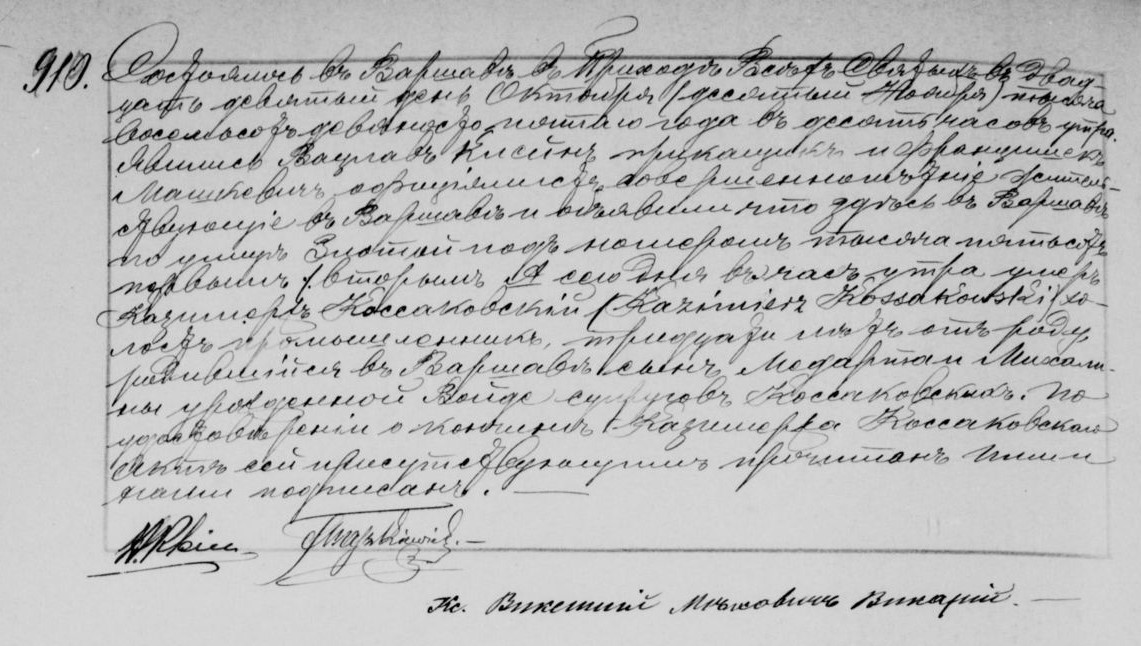 910.
Состоялось въ Варшавѣ въ Приходѣ Всѣхъ Святыхъ въ Двад-
цать девятый день Октября (десятый Ноября) тысяча
восемьсотъ девяносто пятаго года въ десять часовъ утра.
Явились Вацлавъ прикащикъ и Францишекъ
Машкевичъ оффиціялистъ, совершеннолѣтніе жительс-
твующіе въ Варшавѣ и объявили что здѣсь въ Варшавѣ
по улицѣ Златой подъ номеромъ тысяча пятьсотъ
вторымъ А сего дня въ часъ утра умеръ
Казимержъ Коссаковскій (Kazimierz Kossakowski) хо-
лостъ промышленникъ, тридцати лѣтъ отъ роду
родившійся въ Варшавѣ сынъ Медарта и Михали-
ны урожденной Войде супруговъ Коссаковскихъ. По
удостовѣреніи о кончинѣ Казимержа Коссаковскаго
Актъ сей присутствующимъ прочитанъ ими и
нами подписанъ.
Кс. Викентій Викарій.